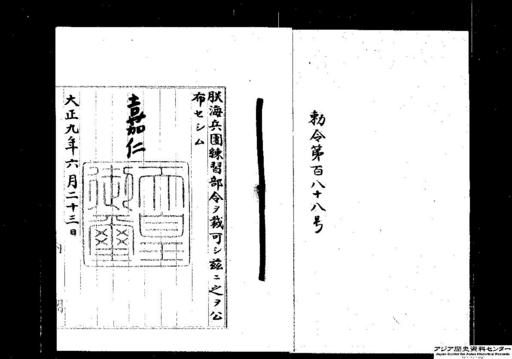 勅令第百八十八号
朕海兵団練習部令ヲ裁可シ茲ニ之ヲ公
布セシム
嘉仁
天皇
御璽
大正九年六月二十三日
アジア歴史資料センター
Japan Center for Asian Historical Records